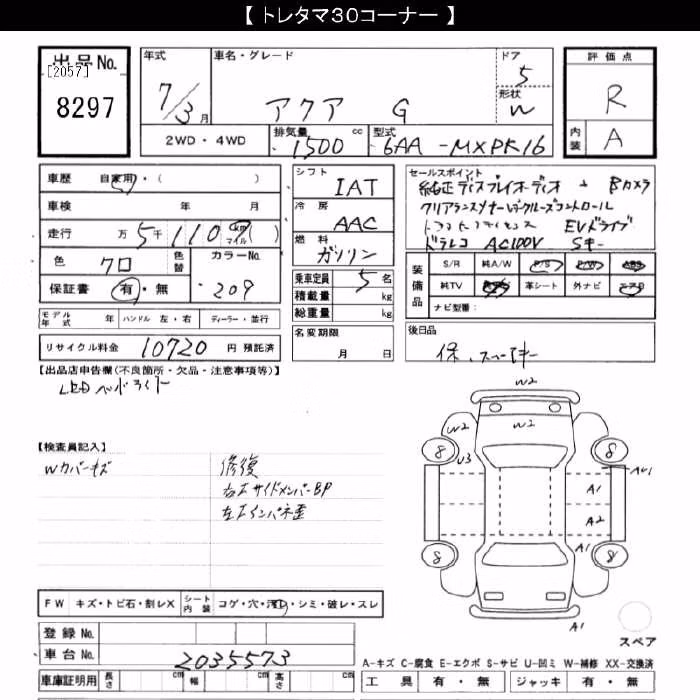 【 トレタマ30コーナー 】
出品No.
[2057]
8297
年式
7/3月
車名・グレード
アクア G
ドア
5
形状
W
評価点
R
内装
A
2WD・4WD
排気量
1500 cc
型式
6AA -MXPK16
車歴 自家用・( )
車検 年 月
走行 万 5千 1109 km マイル ( )
色 クロ
色替
カラーNo.
209
保証書 有・無
シフト
IAT
冷房
AAC
燃料
ガソリン
乗車定員 5名
積載量 kg
総重量 kg
セールスポイント
純正ディスプレイオーディオ + Bカメラ
クリアランスソナー レーダークルーズコントロール
EVドライブ
ドラレコ AC100V Sキー
装備品
S/R 純A/W P/S P/W ABS
純TV 革シート 外ナビ エアB
ナビ型番:
モデル年式 年 ハンドル 左・右 ディーラー・並行
名変期限
月 日
後日品
保、スペアキー
リサイクル料金 10720 円 預託済
【出品店申告欄(不良箇所・欠品・注意事項等)】
LEDヘッドライト
【検査員記入】
Wカバーキズ
修復
右Fサイドメンバー BP
左Fインパネ歪
W2
W2
W2
U3
8
8
8
8
AU1
A1
A2
A1
A1
スペア
FW キズ・トビ石・割レX
シート内装 コゲ・穴・汚レ・シミ・破レ・スレ
登録 No.
車台 No. 2035573
車庫証明用 長さ cm 幅 cm 高さ cm
A-キズ C-腐食 E-エクボ S-サビ U-凹ミ W-補修 XX-交換済
工具 有・無 ジャッキ 有・無